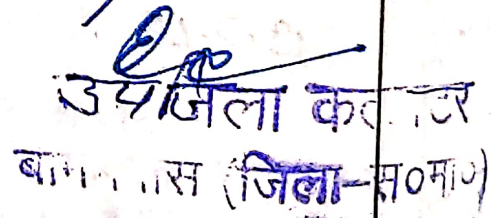 उपजिला कलक्टर
बामनवास (जिला-स०मा०)